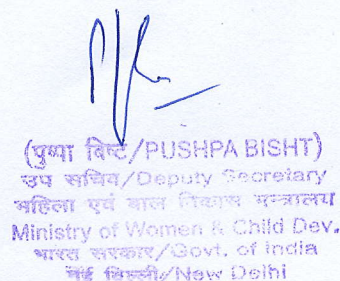 (पुष्पा बिष्ट/PUSHPA BISHT)
उप सचिव/Deputy Secretary
महिला एवं बाल विकास मन्त्रालय
Ministry of Women & Child Dev.
भारत सरकार/Govt. of India
नई दिल्ली/New Delhi